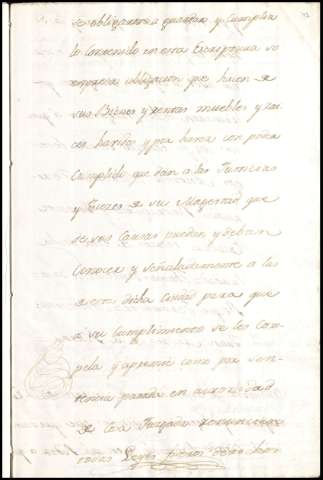 se obligaron a guardar y Cumplir
lo Contenido en esta Escriptura so
expresa obligacion que hacen de
sus Bienes y rentas muebles y rai
ces havidos y por haver con poder
Cumplido que dan a las Justicias
y Juezes de su Magestad que
de sus Causas puedan y deban
Conocer y señaladamente a las
de esta dicha Ciudad para que
a su Cumplimiento se les Com
pela y apremie como por sen-
tencia pasada en autoridad
de Cosa Juzgada renunciaron
todas Leyes fueros